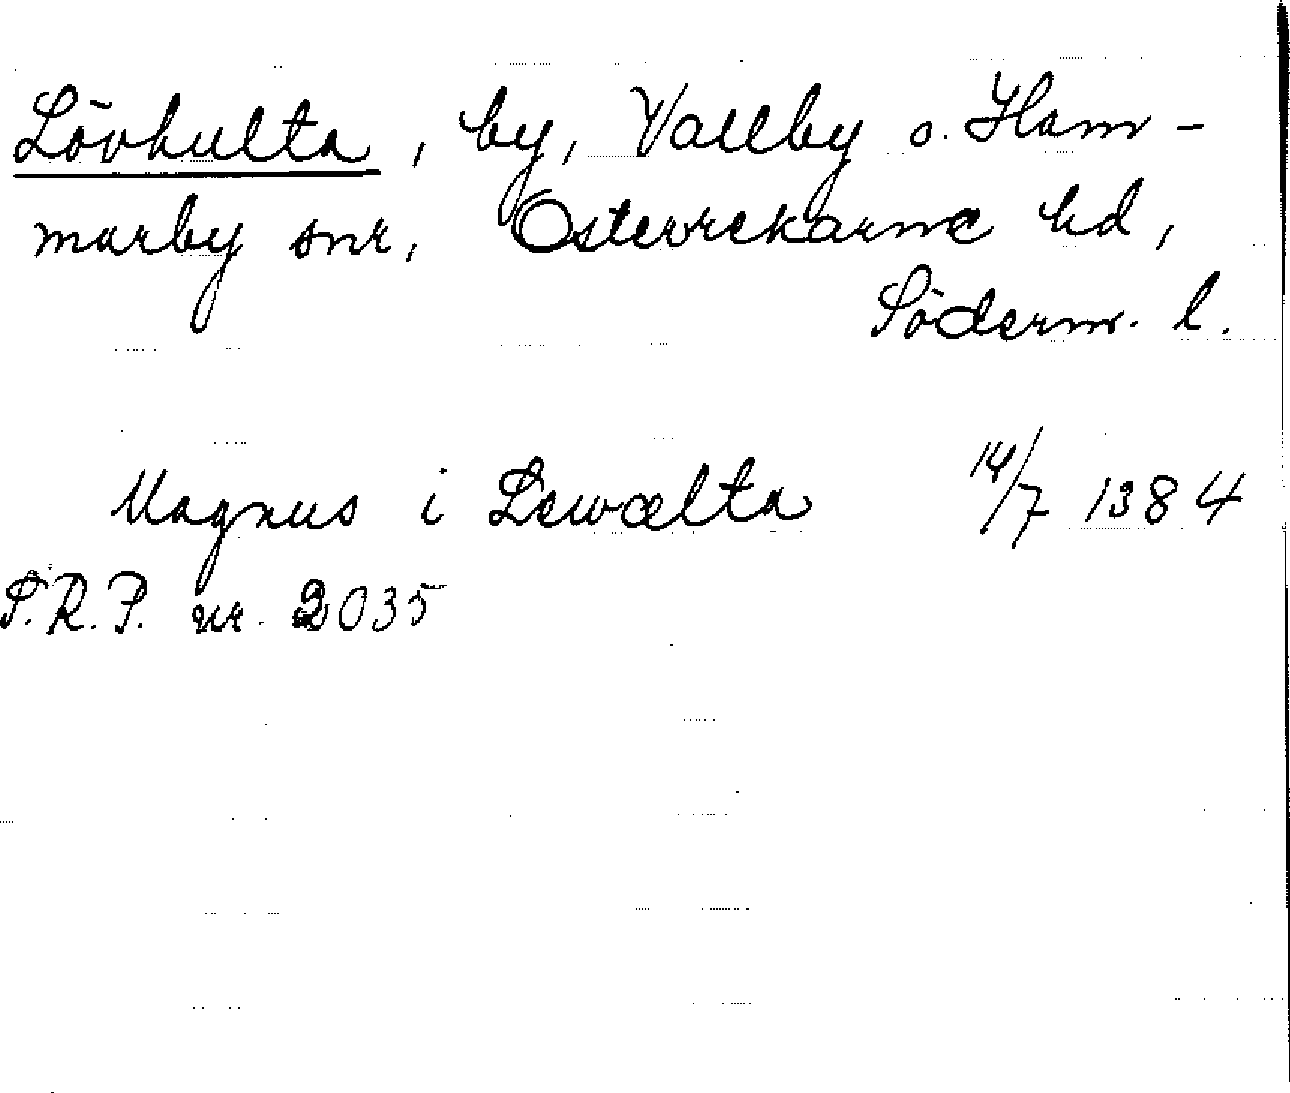 Lövhulta, by, Vallby o. Ham-
marby snr, Österrekarne hd,
Söderm. l.
Magnus i Lewælta 14/7 1384
S.R.P. nr. 2035